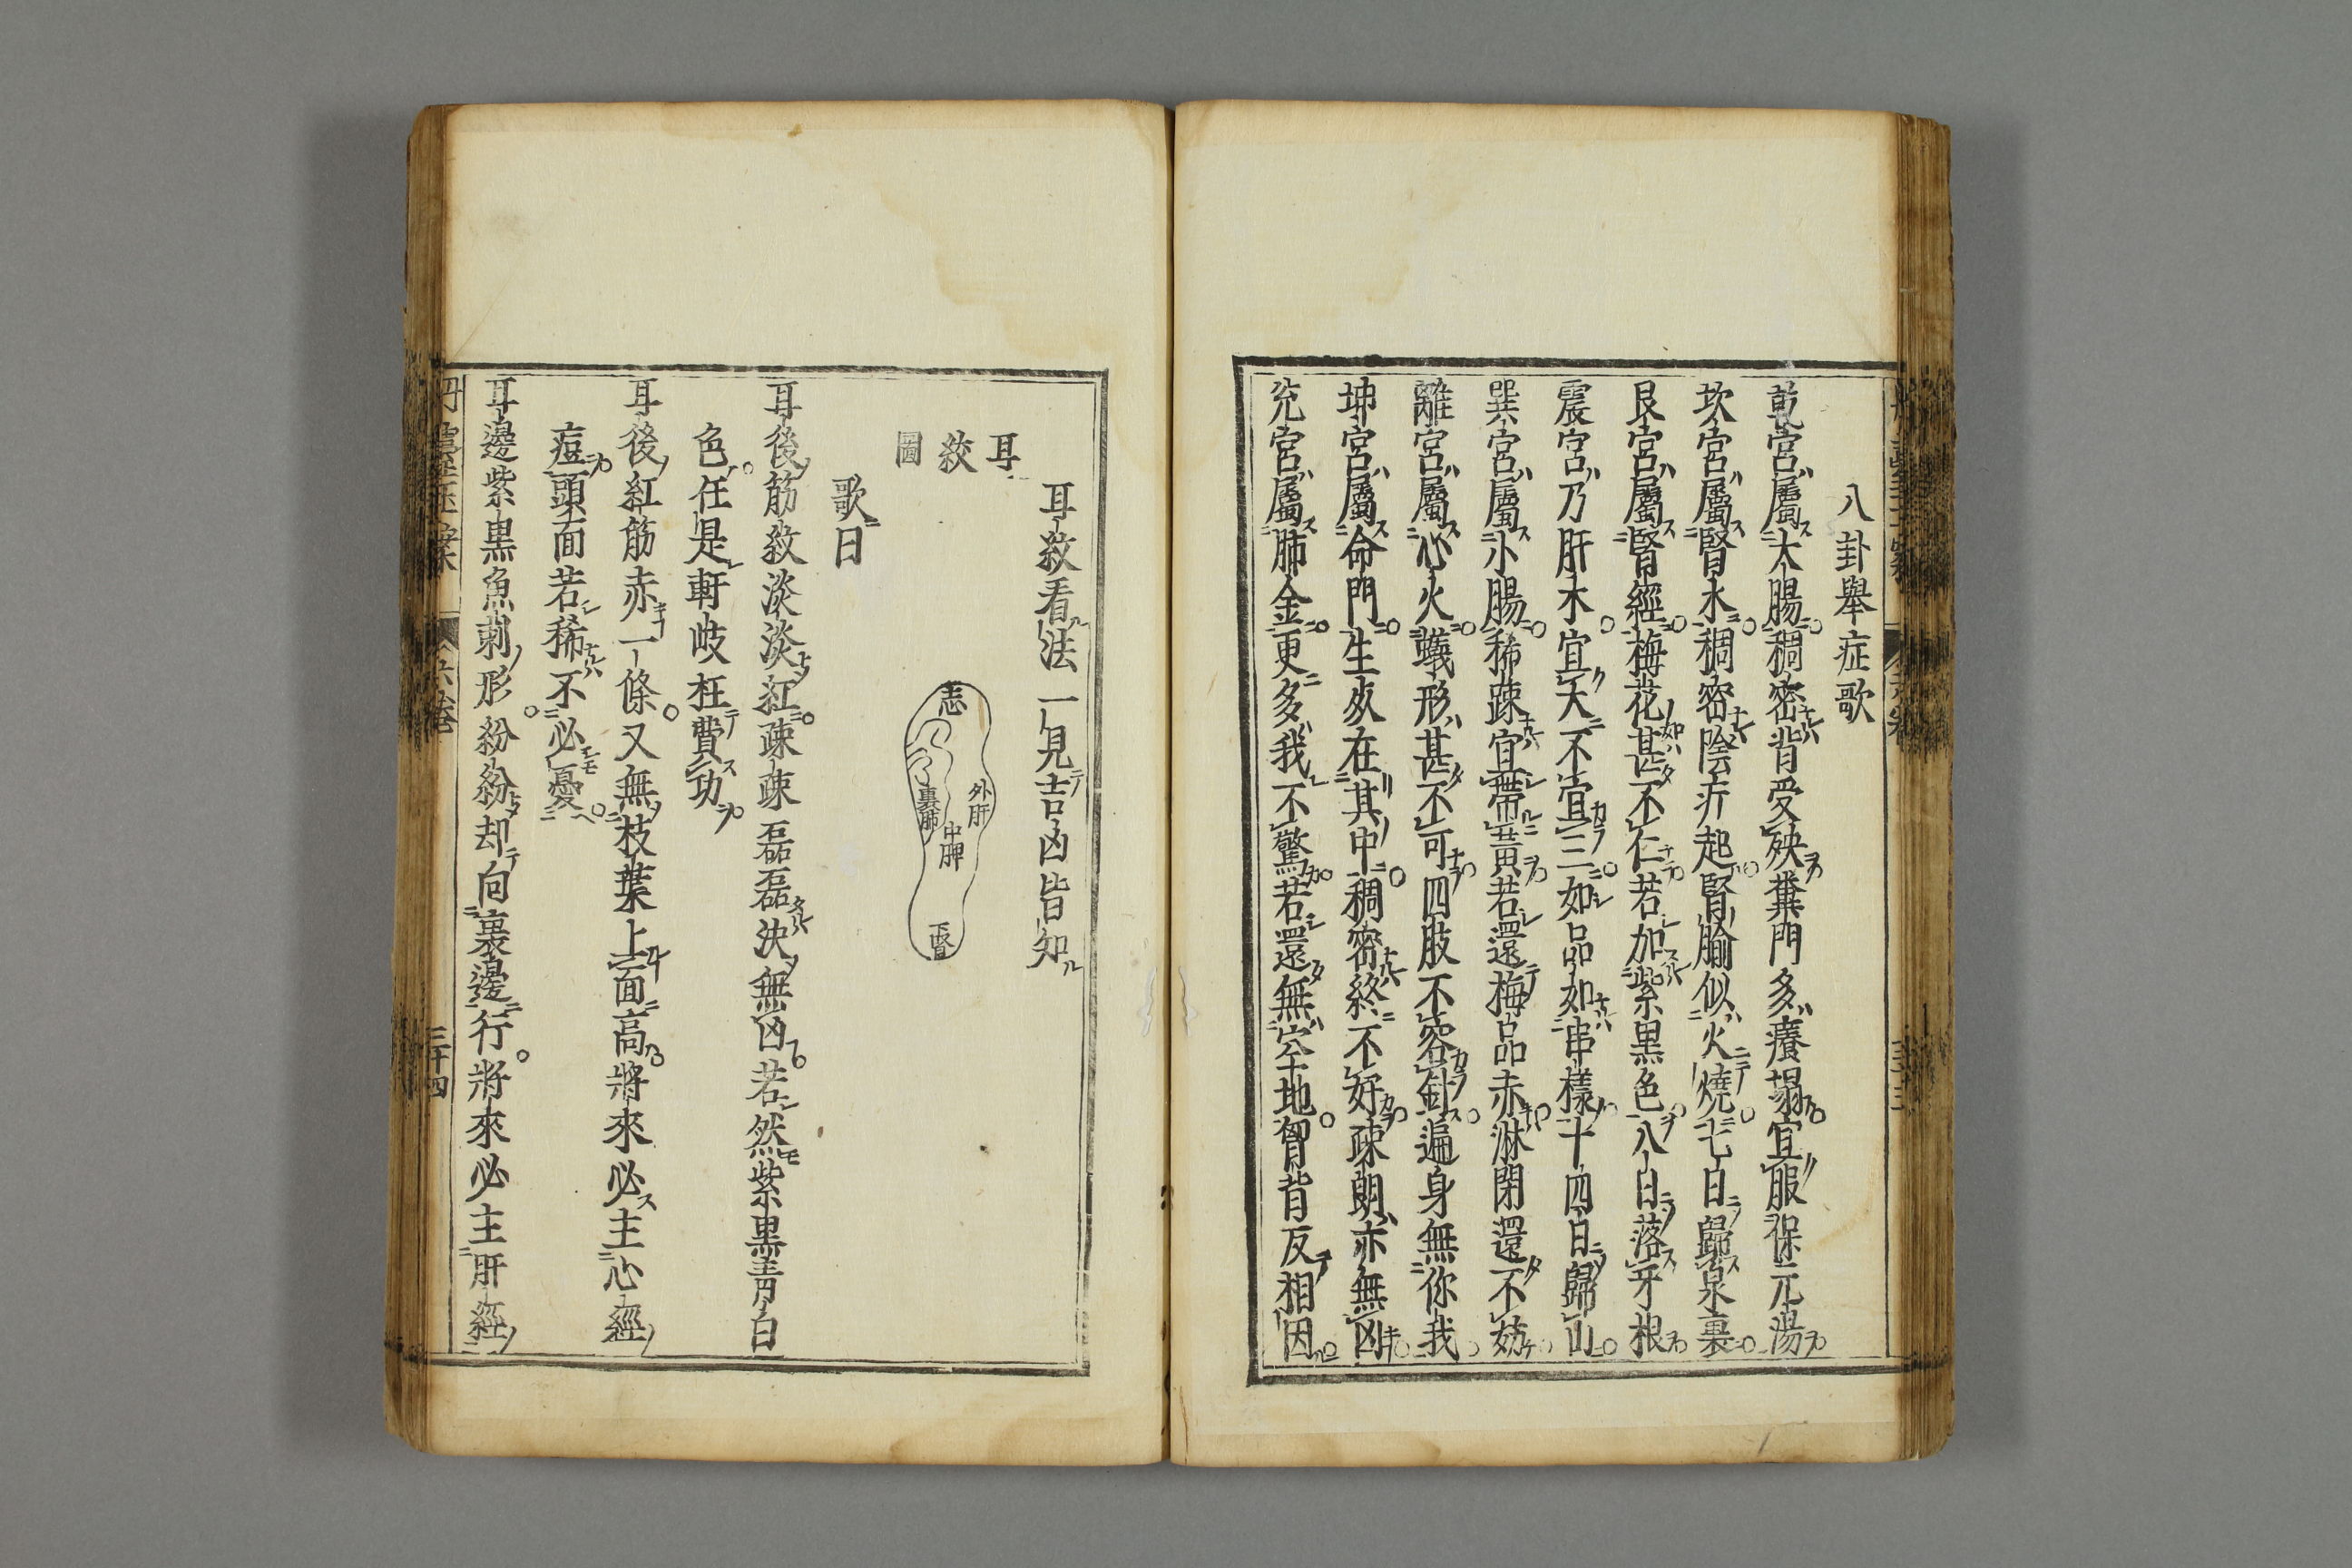 八卦舉症歌
乾宮屬大腸稠密背受殃糞門多癢塌宜服保元湯
坎宮屬腎水稠密陰疔起腎腧似火燒七日歸泉裏
艮宮屬腎經梅花甚不仁若加紫黑色八日落牙根
震宮乃肝木宜大不宜三如品如串樣十四日歸山
巽宮屬小腸稀疎宜帶黃若還梅品赤淋閉還不妨
離宮屬心火蟻形甚不可四肢不容針遍身無你我
坤宮屬命門生灰在其中稠密終不好疎朗亦無凶
兊宮屬肺金更多我不驚若還無空地胷背反相因
耳紋看法一見吉凶皆知
耳紋圖
志
外肝
中脾
裏肺
腎
歌曰
耳後筋紋淡淡紅疎疎磊磊決無凶若然紫黑青白
色任是軒岐枉費功
耳後紅筋赤一條又無枝葉上面高將來必主心經
痘頭面若稀不必憂
耳邊紫黒魚刺形紛紛却向裏邊行將來必主肝經
三十四